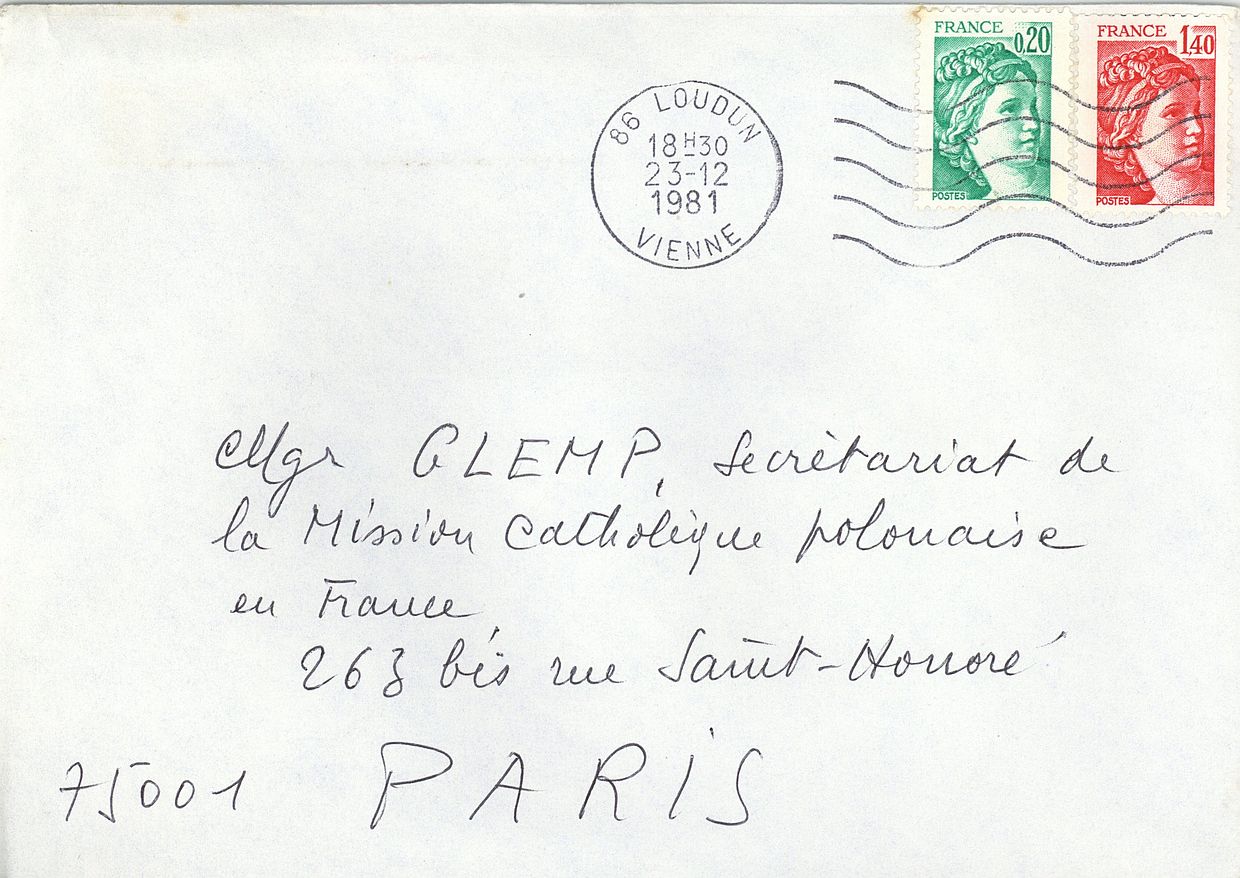 FRANCE 0,20
POSTES
FRANCE 1,40
POSTES
86 LOUDUN
18H30
23-12
1981
VIENNE
Mgr GLEMP, Secrétariat de
la Mission Catholique polonaise
en France,
263 bis rue Saint-Honoré
75001 PARIS